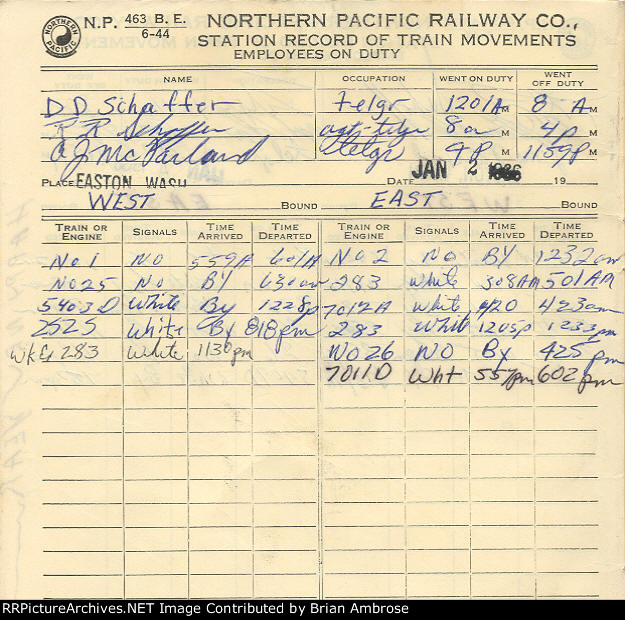 NORTHERN PACIFIC
N.P. 463 B. E. 6-44
NORTHERN PACIFIC RAILWAY CO.,
STATION RECORD OF TRAIN MOVEMENTS
EMPLOYEES ON DUTY
NAME OCCUPATION WENT ON DUTY WENT OFF DUTY
D D Schaffer Telgr 1201A M 8 A M
R R agt-telgr 8 am 4p M
A J McParland telgr 4 P M 1159P M
PLACE EASTON WASH DATE JAN 2 19
WEST BOUND EAST BOUND
TRAIN OR ENGINE SIGNALS TIME ARRIVED TIME DEPARTED TRAIN OR ENGINE SIGNALS TIME ARRIVED TIME DEPARTED
No 1 NO 559A 601A No 2 NO BY 1232am
NO 25 No BY 630am 283 white 308AM 501AM
5403D White By 1228p 7012A white 420 423am
2525 White By 818pm 283 White 1205p 1233pm
WKEx 283 White 1130pm NO 26 NO By 425pm
7011D Wht 557pm 602pm
RRPictureArchives.NET Image Contributed by Brian Ambrose